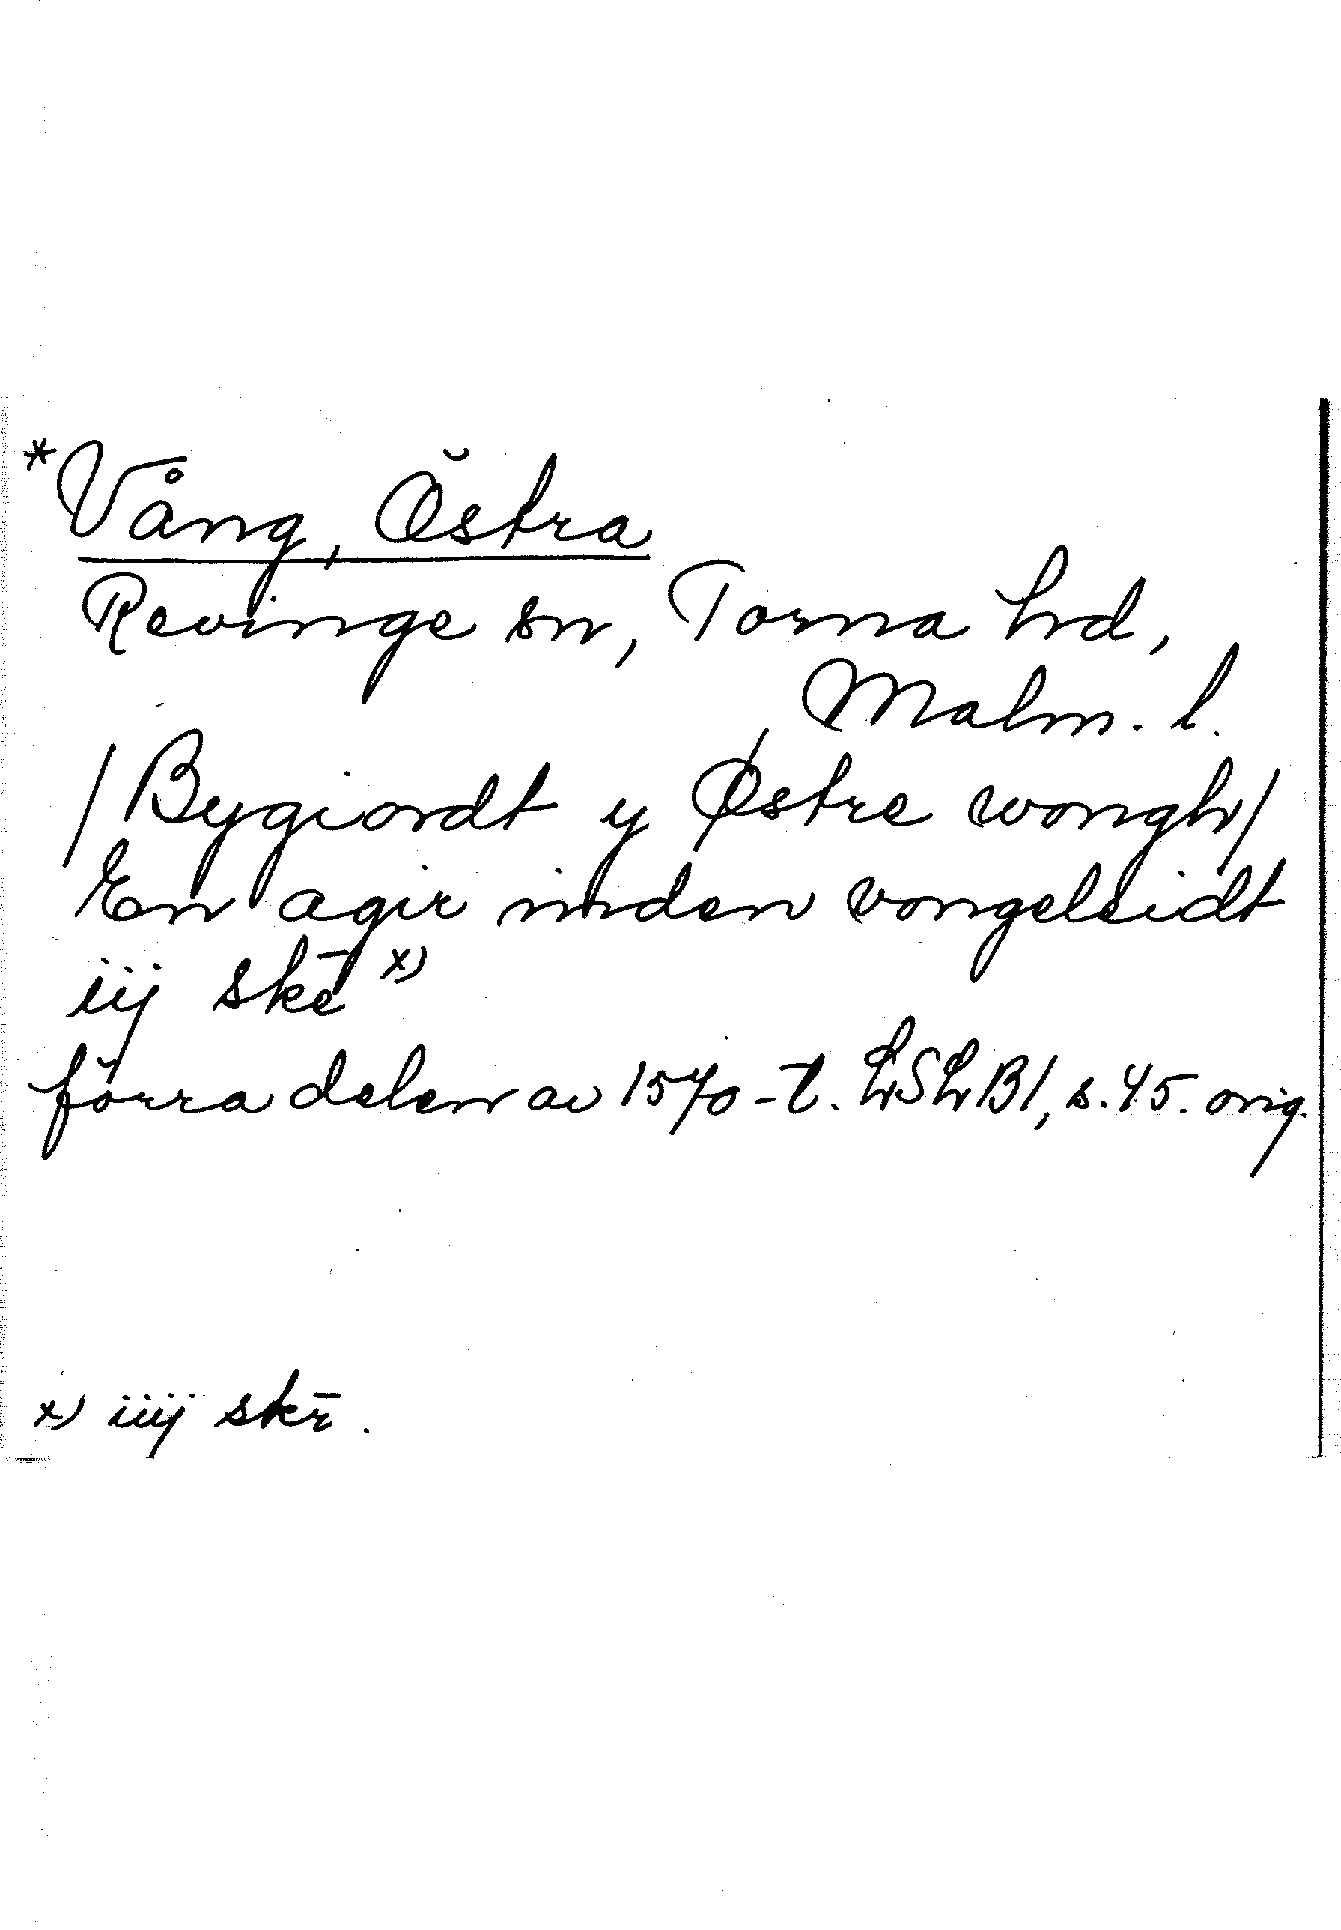 *Vång, Östra
Revinge sn, Torna hd,
Malm. l.
/Bygiordt y Østre wongh/
En agir inden vongeleidt
iij skē x)
förra delen av 1570-t. LSLB1, s. 45. orig.
x) iiij skr̄.